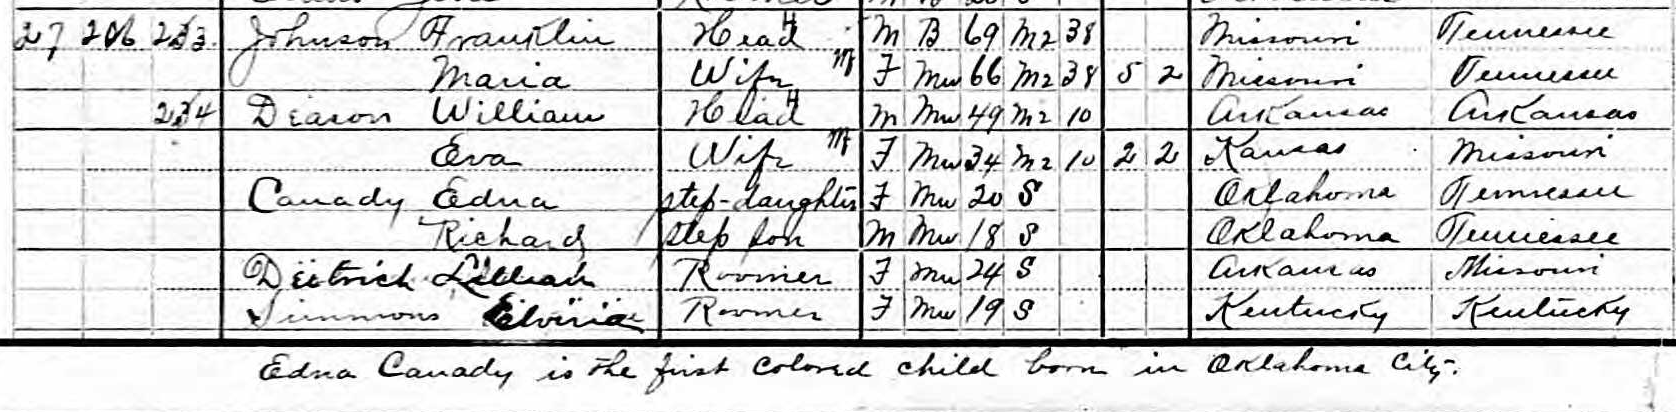 M B S
27 206 253 Johnson Franklin Head M B 69 M2 38 Missouri Tennessee
Maria Wife F Mu 66 M2 38 5 2 Missouri Tennessee
254 Deason William Head M Mu 49 M2 10 Arkansas Arkansas
Eva Wife F Mu 34 M2 10 2 2 Kansas Missouri
Canady Edna step-daughter F Mu 20 S Oklahoma Tennessee
Richard step son M Mu 18 S Oklahoma Tennessee
Deitrich Lillian Roomer F Mu 24 S Arkansas Missouri
Simmons Roomer F Mu 19 S Kentucky Kentucky
Edna Canady is the first colored child born in Oklahoma City.